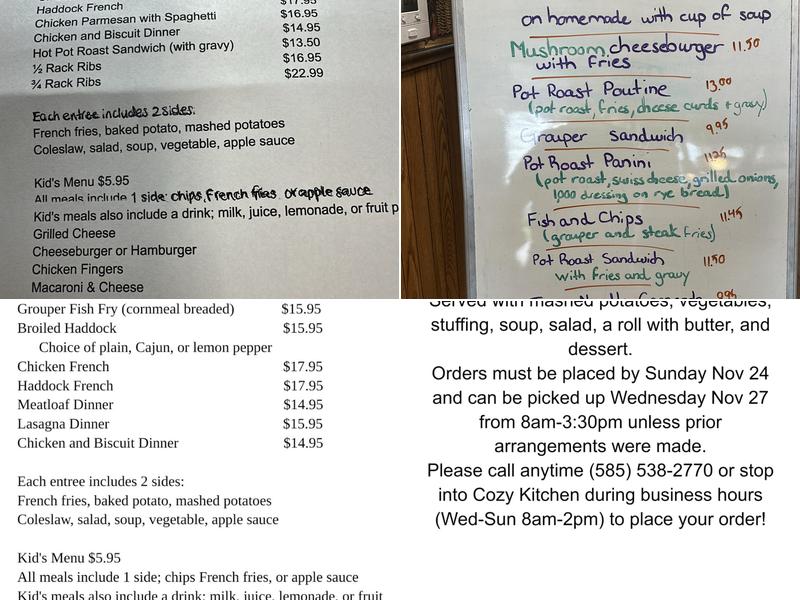 Haddock French $17.95
Chicken Parmesan with Spaghetti $16.95
Chicken and Biscuit Dinner $14.95
Hot Pot Roast Sandwich (with gravy) $13.50
½ Rack Ribs $16.95
¾ Rack Ribs $22.99
Each entree includes 2 sides:
French fries, baked potato, mashed potatoes
Coleslaw, salad, soup, vegetable, apple sauce
Kid's Menu $5.95
All meals include 1 side: chips, french fries or apple sauce
Kid's meals also include a drink; milk, juice, lemonade, or fruit p
Grilled Cheese
Cheeseburger or Hamburger
Chicken Fingers
Macaroni & Cheese
on homemade with cup of soup
Mushroom cheeseburger 11.50
with fries
Pot Roast Poutine 13.00
(pot roast, fries, cheese curds + gravy)
Grouper Sandwich 9.95
Pot Roast Panini 11.25
(pot roast, swiss cheese, grilled onions,
1000 dressing on rye bread)
Fish and Chips 11.45
(grouper and steak fries)
Pot Roast Sandwich 11.50
with fries and gravy
Grouper Fish Fry (cornmeal breaded) $15.95
Broiled Haddock $15.95
Choice of plain, Cajun, or lemon pepper
Chicken French $17.95
Haddock French $17.95
Meatloaf Dinner $14.95
Lasagna Dinner $15.95
Chicken and Biscuit Dinner $14.95
Each entree includes 2 sides:
French fries, baked potato, mashed potatoes
Coleslaw, salad, soup, vegetable, apple sauce
Kid's Menu $5.95
All meals include 1 side; chips French fries, or apple sauce
Kid's meals also include a drink; milk, juice, lemonade, or fruit
Served with mashed potatoes, vegetables,
stuffing, soup, salad, a roll with butter, and
dessert.
Orders must be placed by Sunday Nov 24
and can be picked up Wednesday Nov 27
from 8am-3:30pm unless prior
arrangements were made.
Please call anytime (585) 538-2770 or stop
into Cozy Kitchen during business hours
(Wed-Sun 8am-2pm) to place your order!